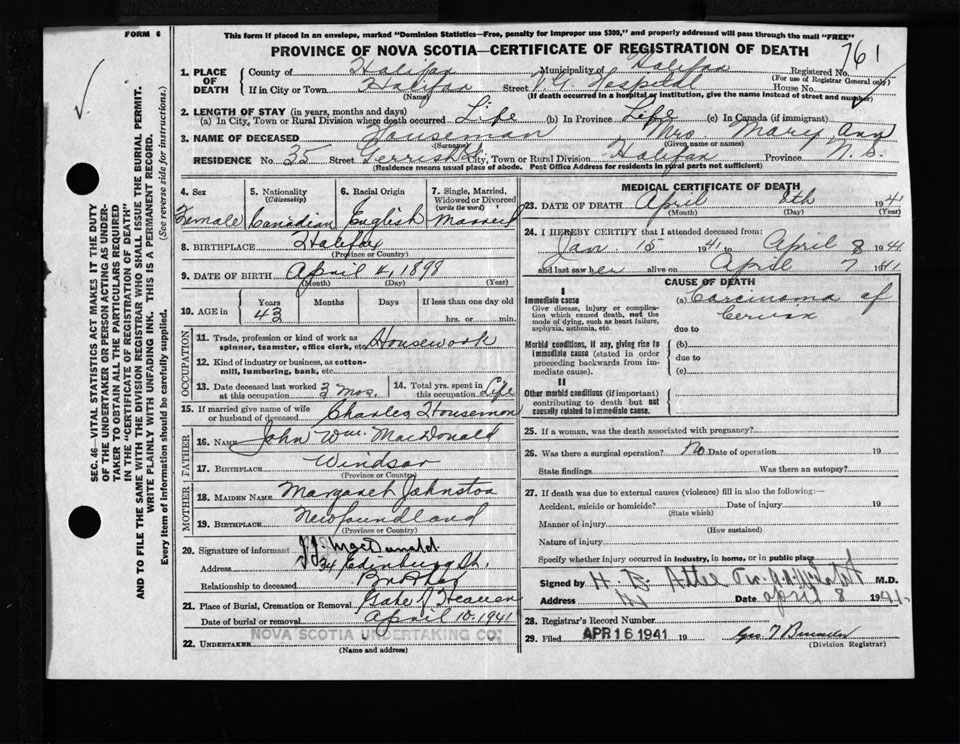 FORM 6
This form if placed in an envelope, marked "Dominion Statistics—Free, penalty for improper use $300," and properly addressed will pass through the mail "FREE"
PROVINCE OF NOVA SCOTIA—CERTIFICATE OF REGISTRATION OF DEATH
1. PLACE OF DEATH
County of Halifax Municipality of Halifax Registered No. 761
(For use of Registrar General only)
If in City or Town Halifax Street V.G. Hospital House No.
(Name) (If death occurred in a hospital or institution, give the name instead of street and number)
2. LENGTH OF STAY (in years, months and days)
(a) In City, Town or Rural Division where death occurred Life (b) In Province Life (c) In Canada (if immigrant)
3. NAME OF DECEASED Houseman Mrs. Mary Ann
(Surname) (Given name or names)
RESIDENCE No. 35 Street Gerrish St. City, Town or Rural Division Halifax Province N.S.
(Residence means usual place of abode. Post Office Address for residents in rural parts not sufficient)
4. Sex 5. Nationality (Citizenship) 6. Racial Origin 7. Single, Married, Widowed or Divorced (write the word)
Female Canadian English Married
8. BIRTHPLACE Halifax
(Province or Country)
9. DATE OF BIRTH April 4, 1898
(Month) (Day) (Year)
10. AGE in Years Months Days If less than one day old
43 hrs. or min.
OCCUPATION
11. Trade, profession or kind of work as spinner, teamster, office clerk, etc. Housework
12. Kind of industry or business, as cotton-mill, lumbering, bank, etc.
13. Date deceased last worked at this occupation 3 Mos. 14. Total yrs. spent in this occupation Life
15. If married give name of wife or husband of deceased Charles Houseman
FATHER
16. NAME John Wm. MacDonald
17. BIRTHPLACE Windsor
(Province or Country)
MOTHER
18. MAIDEN NAME Margaret Johnston
19. BIRTHPLACE Newfoundland
(Province or Country)
20. Signature of informant J.J. MacDonald.
Address 34 Edinburg St.
Relationship to deceased Brother
21. Place of Burial, Cremation or Removal Gate of Heaven
Date of burial or removal April 10, 1941
NOVA SCOTIA UNDERTAKING CO.
22. UNDERTAKER
(Name and address)
MEDICAL CERTIFICATE OF DEATH
23. DATE OF DEATH April 8th 1941
(Month) (Day) (Year)
24. I HEREBY CERTIFY that I attended deceased from:
Jan. 15 1941 to April 8 1941
and last saw her alive on April 7 1941
CAUSE OF DEATH
I
Immediate cause
Give disease, injury or complication which caused death, not the mode of dying, such as heart failure, asphyxia, asthenia, etc.
(a) Carcinoma of Cervix
due to
Morbid conditions, if any, giving rise to immediate cause (stated in order proceeding backwards from immediate cause).
(b)
due to
(c)
II
Other morbid conditions (if important) contributing to death but not causally related to immediate cause.
25. If a woman, was the death associated with pregnancy?
26. Was there a surgical operation? No Date of operation 19
State findings Was there an autopsy?
27. If death was due to external causes (violence) fill in also the following:—
Accident, suicide or homicide? Date of injury 19
(State which)
Manner of injury
(How sustained)
Nature of injury
Specify whether injury occurred in industry, in home, or in public place
Signed by M.D.
Address Date April 8 1941.
28. Registrar's Record Number
29. Filed APR 16 1941 19
(Division Registrar)
SEC. 46—VITAL STATISTICS ACT MAKES IT THE DUTY
OF THE UNDERTAKER OR PERSON ACTING AS UNDER-
TAKER TO OBTAIN ALL THE PARTICULARS REQUIRED
IN THE "CERTIFICATE OF REGISTRATION OF DEATH"
AND TO FILE THE SAME WITH THE DIVISION REGISTRAR WHO SHALL ISSUE THE BURIAL PERMIT.
WRITE PLAINLY WITH UNFADING INK. THIS IS A PERMANENT RECORD.
Every item of information should be carefully supplied. (See reverse side for instructions.)